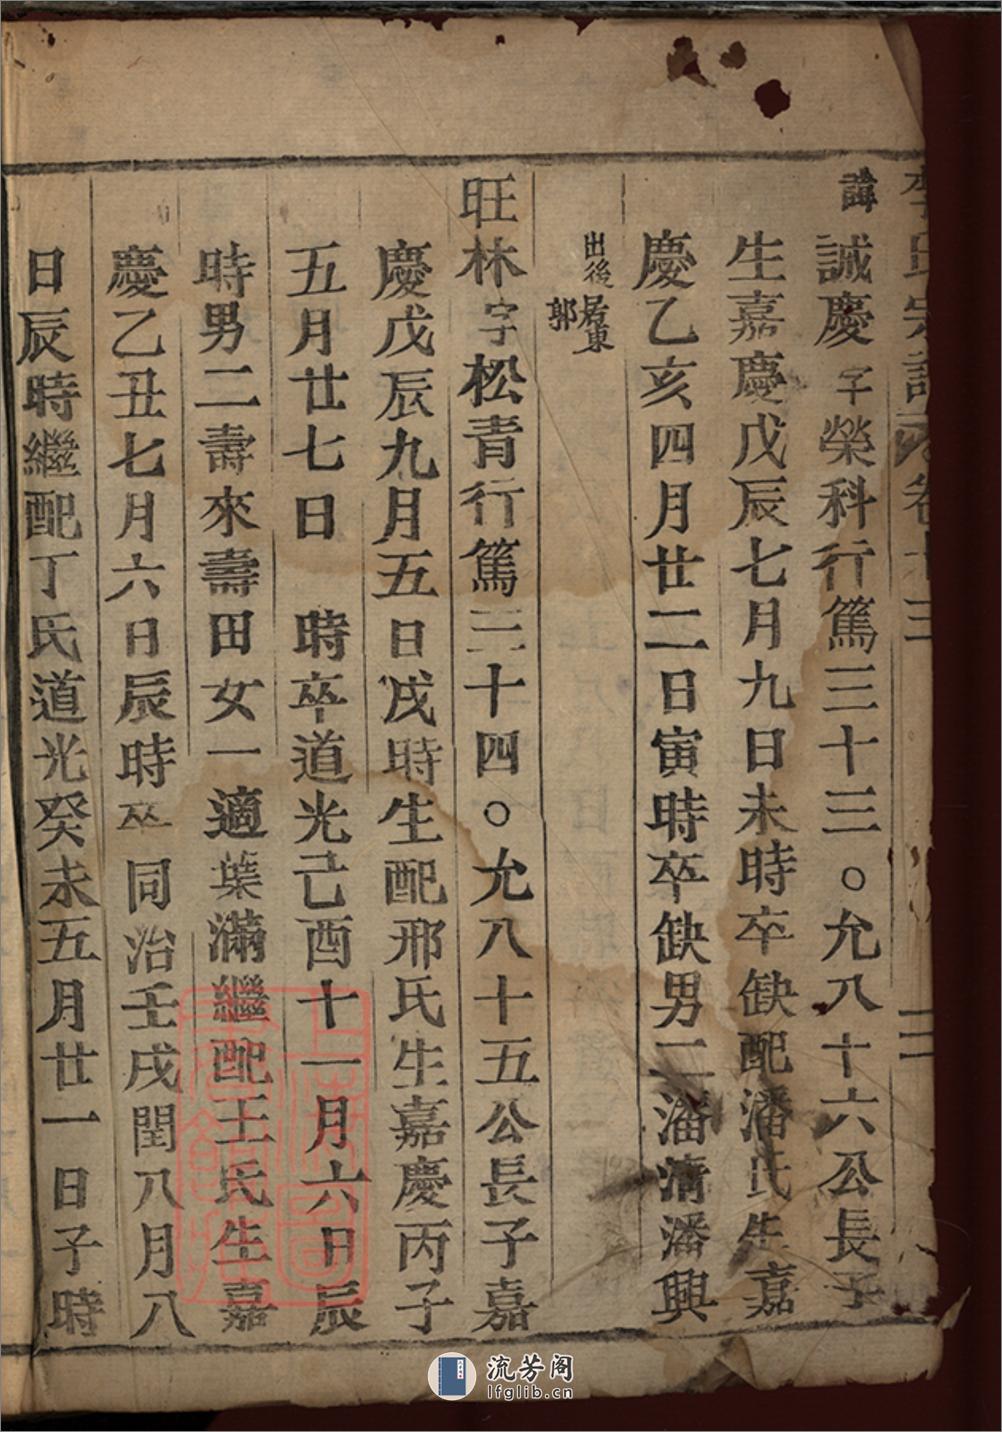 李氏宗譜 卷十三 二
諱誠慶字榮科行篤三十三○允八十六公長子
生嘉慶戊辰七月九日未時卒缺配潘氏生嘉
慶乙亥四月廿二日寅時卒缺男二潘清潘興
出後居東郭
旺林字松青行篤三十四○允八十五公長子嘉
慶戊辰九月五日戌時生配邢氏生嘉慶丙子
五月廿七日 時卒道光己酉十一月六日辰
時男二壽來壽田女一適葉滿繼配王氏生嘉
慶乙丑七月六日辰時卒同治壬戌閏八月八
日辰時繼配丁氏道光癸未五月廿一日子時
上海圖書館藏
流芳阁
lfglib.cn